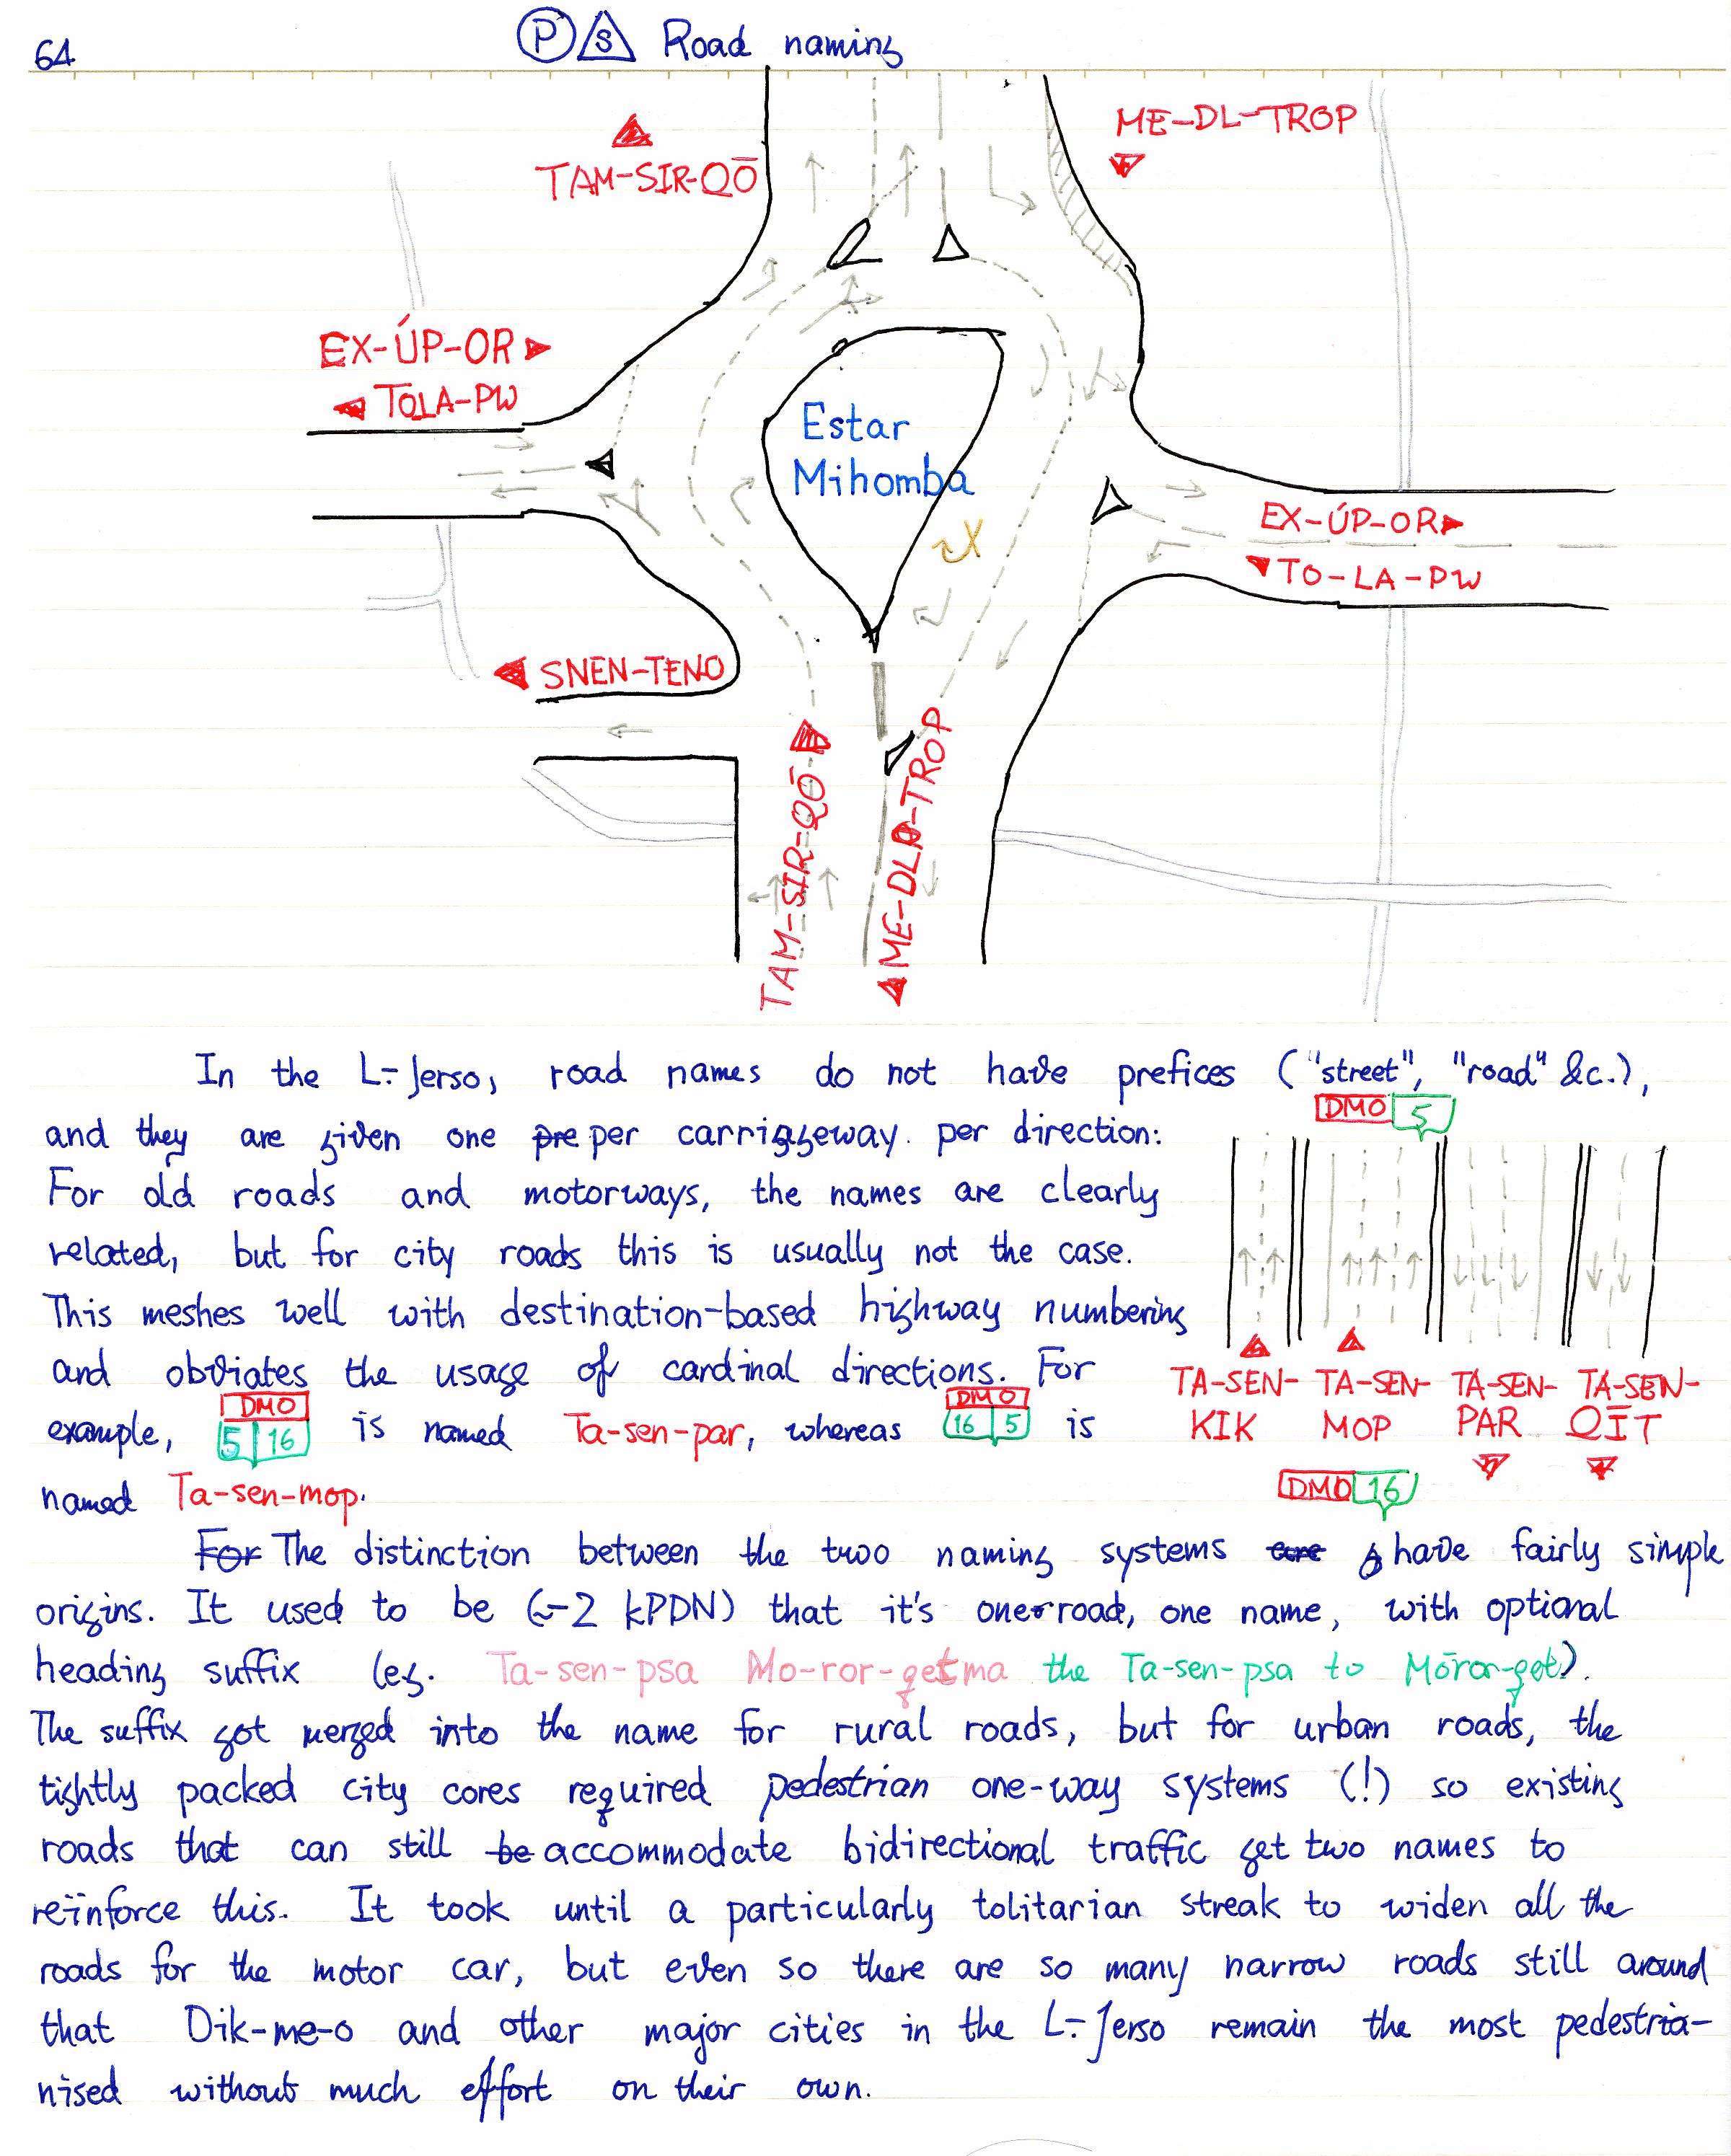 64
P S Road naming
TAM-SIR-QŌ
ME-DL-TROP
EX-ÚP-OR
TOLA-PW
Estar
Mihomba
EX-ÚP-OR
TO-LA-PW
SNEN-TENO
TAM-SIR-QŌ
ME-DL-TROP
In the L-Jerso, road names do not have prefices ("street", "road" &c.),
and they are given one pre per carriageway. per direction:
For old roads and motorways, the names are clearly
related, but for city roads this is usually not the case.
This meshes well with destination-based highway numbering
and obviates the usage of cardinal directions. For
example, DMO 5 16 is named Ta-sen-par, whereas DMO 16 5 is
named Ta-sen-mop.
DMO 5
TA-SEN-KIK
TA-SEN-MOP
TA-SEN-PAR
TA-SEN-QĪT
DMO 16
For The distinction between the two naming systems are have fairly simple
origins. It used to be (~-2 kPDN) that it's one road, one name, with optional
heading suffix (eg. Ta-sen-psa Mo-ror-getma the Ta-sen-psa to Mōror-get).
The suffix got merged into the name for rural roads, but for urban roads, the
tightly packed city cores required pedestrian one-way systems (!) so existing
roads that can still be accommodate bidirectional traffic get two names to
reïnforce this. It took until a particularly tolitarian streak to widen all the
roads for the motor car, but even so there are so many narrow roads still around
that Dik-me-o and other major cities in the L-Jerso remain the most pedestria-
nised without much effort on their own.